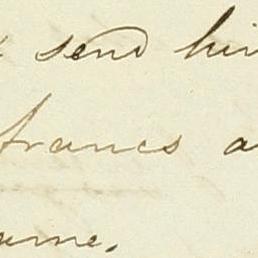 send him
francs a
ame.